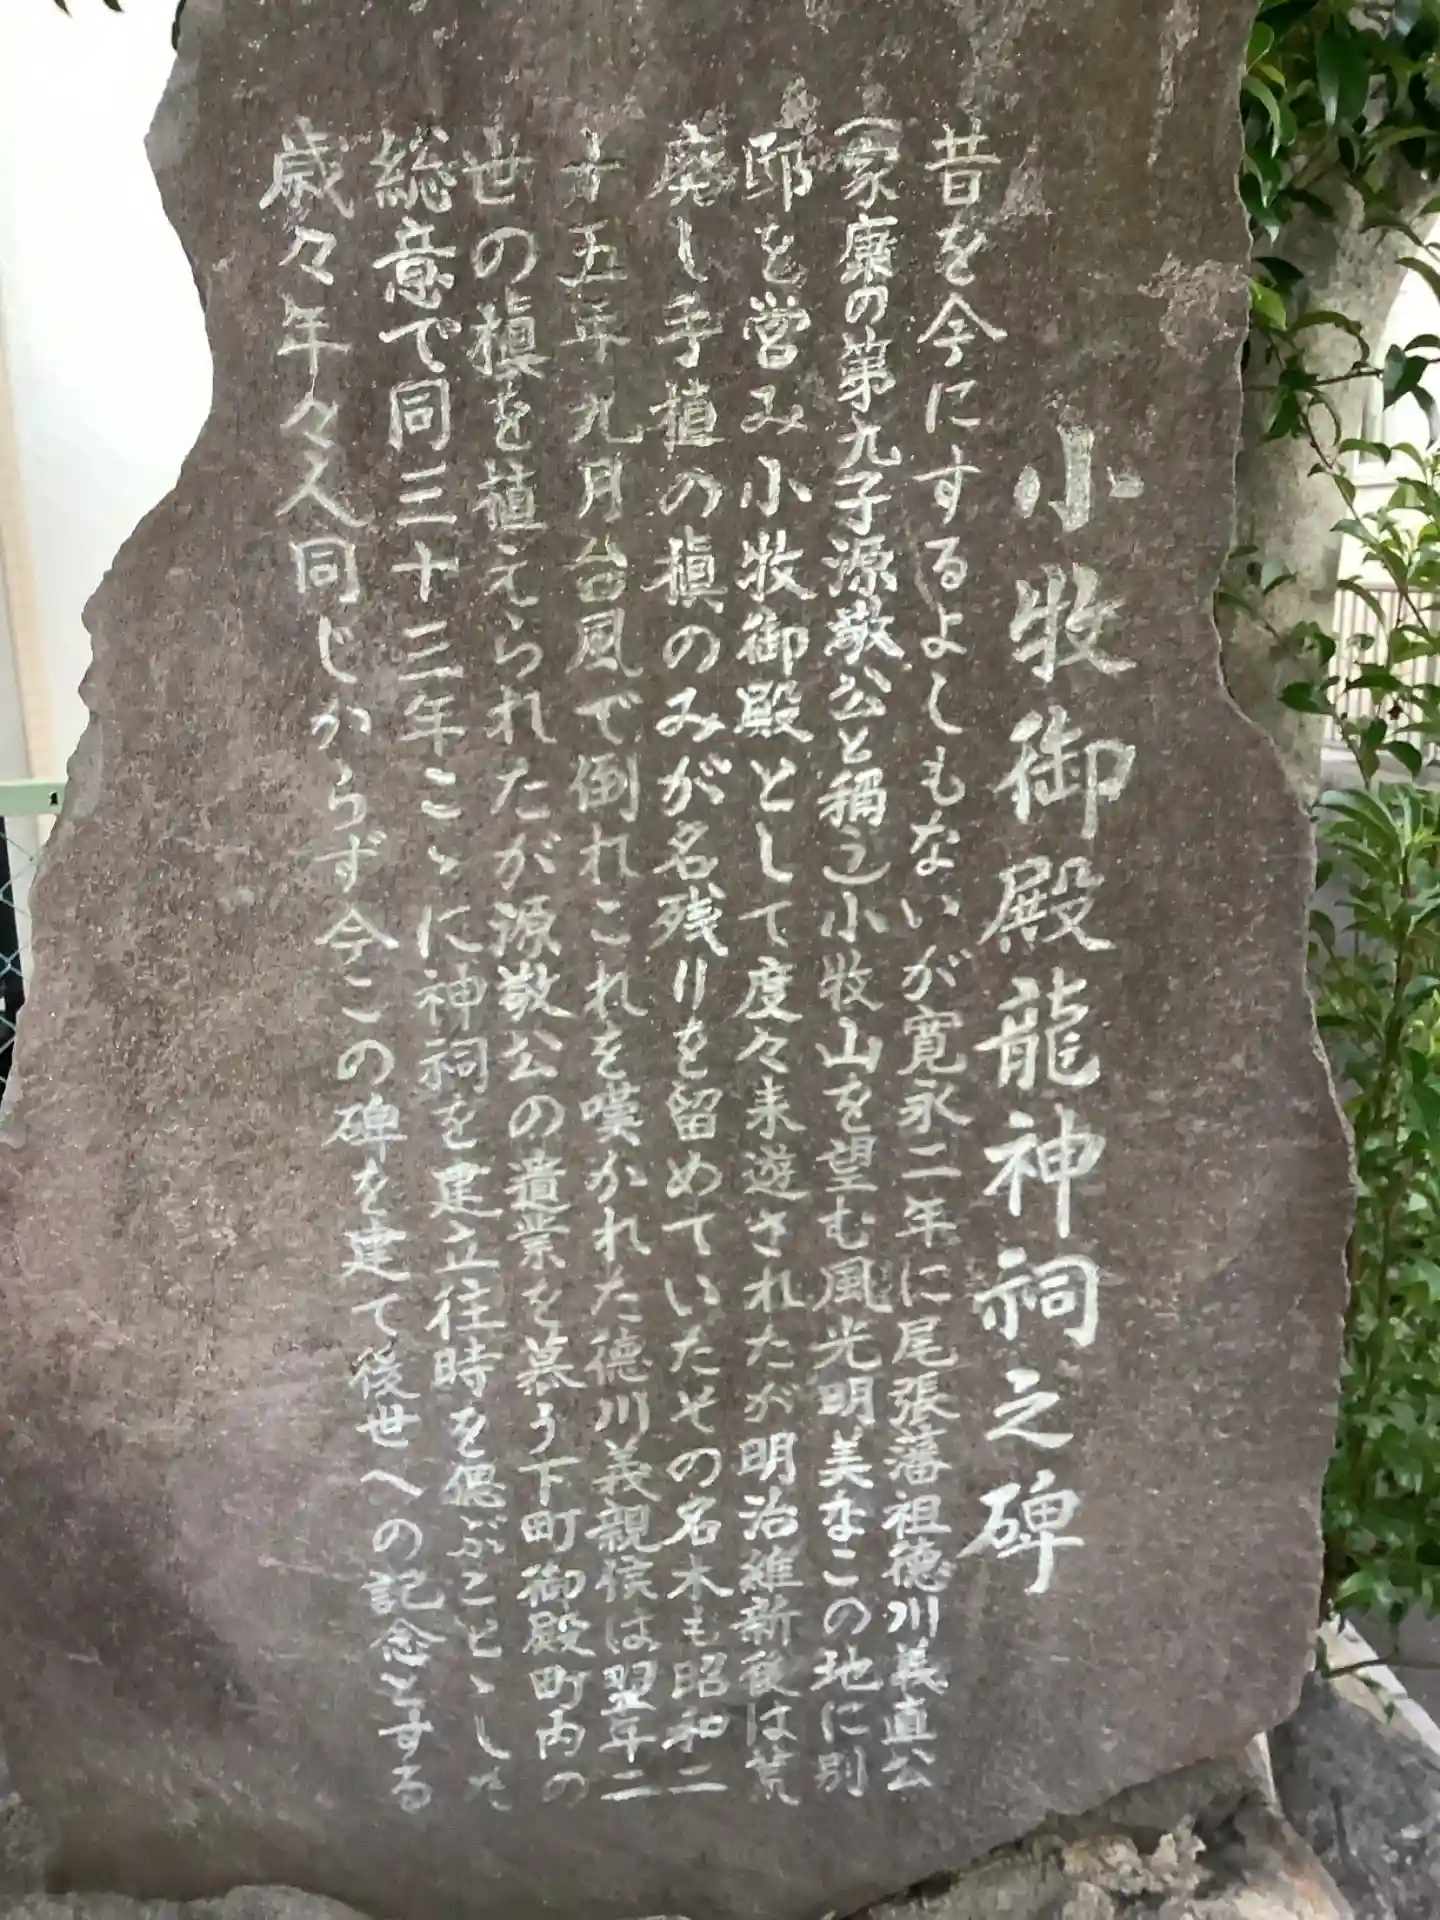 小牧御殿龍神祠之碑
昔を今にするよしもないが寛永二年に尾張藩祖徳川義直公
（家康の第九子源敬公と稱之）小牧山を望む風光明美なこの地に別
邸を営み小牧御殿として度々来遊されたが明治維新後は荒
廃し手植の槙のみが名残りを留めていたその名木も昭和二
十五年九月台風で倒れこれを嘆かれた徳川義親侯は翌年二
世の槇を植えられたが源敬公の遺業を慕う下町御殿町内の
総意で同三十三年こゝに神祠を建立往時を偲ぶことゝした
歳々年々人同じからず今この碑を建て後世への記念とする